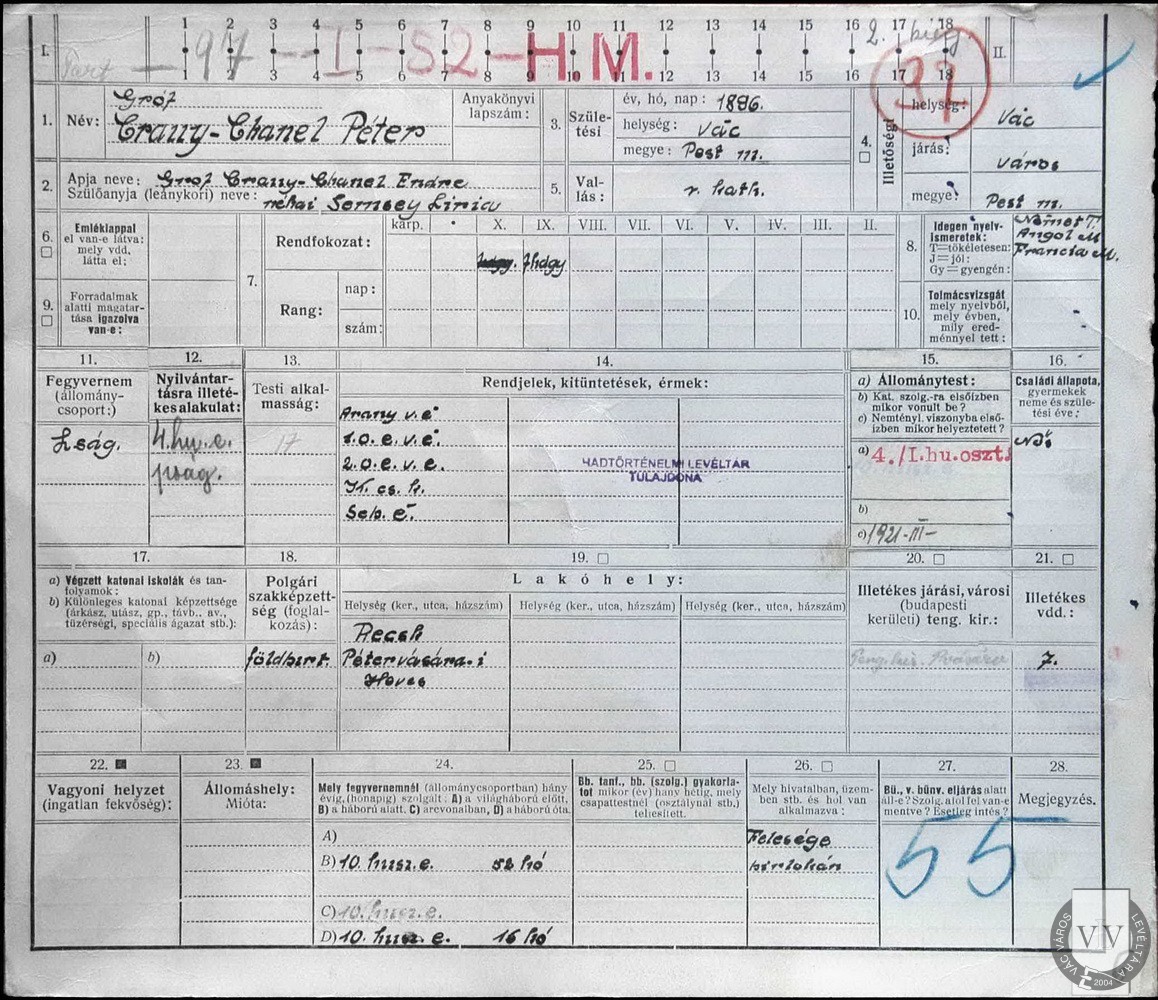 1 2 3 4 5 6 7 8 9 10 11 12 13 14 15 16 17 18
I. II.
97-I-52-H.M.
1 2 3 4 5 6 7 8 9 10 11 12 13 14 15 16 17 18
37
1. Név: Gróf
Crany-Chanel Péter
Anyakönyvi
lapszám:
3. Szüle-
tési
év, hó, nap: 1896.
helység: Vác
megye: Pest m.
4. Illetőségi
helység: Vác
járás: város
megye: Pest m.
2. Apja neve: Gróf Crany-Chanel Endre
Szülőanyja (leánykori) neve: néhai Semsey Livia
5. Val-
lás: r. kath.
6. Emléklappal
el van-e látva:
mely vdd,
látta el:
7. Rendfokozat:
kárp. X. IX. VIII. VII. VI. V. IV. III. II.
fhdgy
Rang:
nap:
szám:
8. Idegen nyelv-
ismeretek:
T=tökéletesen:
J=jól:
Gy=gyengén:
Német T.
Angol M
Francia M.
9. Forradalmak
alatti magatar-
tása igazolva
van-e:
10. Tolmácsvizsgát
mely nyelvből,
mely évben,
mily ered-
ménnyel tett:
11.
Fegyvernem
(állomány-
csoport:)
Lság.
12.
Nyilvántar-
tásra illeté-
kes alakulat:
4. hu. e.
pság.
13.
Testi alkal-
masság:
17
14.
Rendjelek, kitüntetések, érmek:
Arany v.é
1.o.e.v.é.
2.o.e.v.e.
K. cs. k.
Seb. é.
HADTÖRTÉNELMI LEVÉLTÁR
TULAJDONA
15.
a) Állománytest:
b) Kat. szolg.-ra elsőízben
mikor vonult be?
c) Nemtényl. viszonyba első-
ízben mikor helyeztetett?
a) 4./I.hu.oszt.
b)
c) 1921-III-
16.
Családi állapota,
gyermekek
neme és szüle-
tési éve:
Nős
17.
a) Végzett katonai iskolák és tan-
folyamok:
b) Különleges katonai képzettsége
(árkász, utász, gp., távb., av.,
tüzérségi, speciális ágazat stb.):
a) b)
18.
Polgári
szakképzett-
ség (foglal-
kozás):
földbirt.
19.
Lakóhely:
Helység (ker., utca, házszám) Helység (ker., utca, házszám) Helység (ker., utca, házszám)
Recsk
Pétervására-i
Heves
20.
Illetékes járási, városi
(budapesti
kerületi) teng. kir.:
21.
Illetékes
vdd.:
7.
22.
Vagyoni helyzet
(ingatlan fekvőség):
23.
Állomáshely:
Mióta:
24.
Mely fegyvernemnél (állománycsoportban) hány
évig, (hónapig) szolgált: A) a világháború előtt,
B) a háború alatt. C) arcvonalban, D) a háború óta.
A)
B) 10. husz. e. 52 hó
C) 10. husz. e.
D) 10. husz. e. 16 hó
25.
Bb. tanf., bb. (szolg.) gyakorla-
tot mikor (év) hány hétig, mely
csapattestnél (osztálynál stb.)
teljesített.
26.
Mely hivatalban, üzem-
ben stb. és hol van
alkalmazva:
Felesége
birtokán
27.
Bü., v. bünv. eljárás alatt
áll-e? Szolg. alól fel van-e
mentve? Esetleg intés?
55
28.
Megjegyzés.
VÁC VÁROS LEVÉLTÁRA
VV
2004